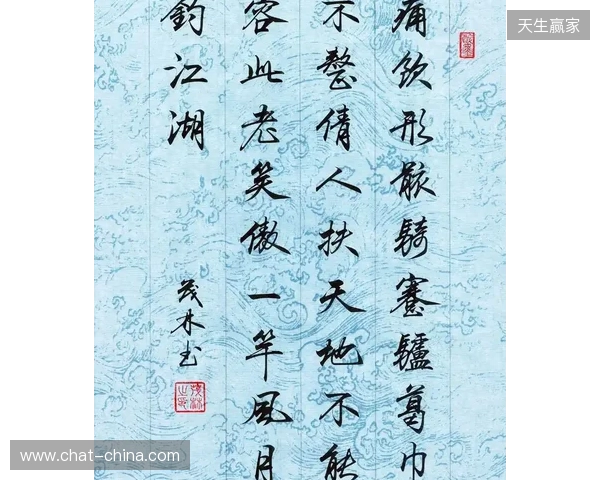 天生赢家
痛飲形骸騎蹇驢葛巾
不整倩人扶天地不能
容此老笑傲一竿風月
釣江湖
茂林书
www.chat-china.com